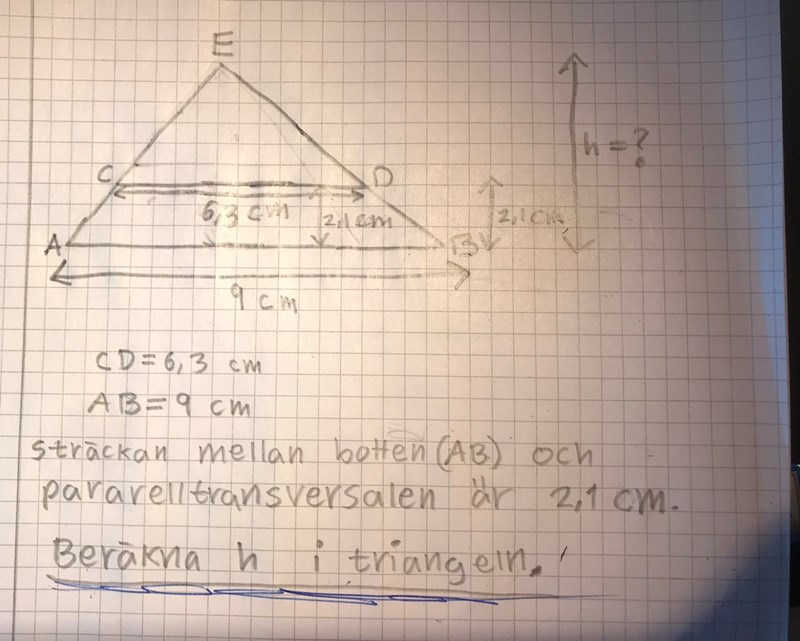 E
C
D
h=?
6,3 cm
2,1 cm
2,1 cm
A
B
9 cm
CD=6,3 cm
AB=9 cm
sträckan mellan botten (AB) och
pararelltransversalen är 2,1 cm.
Beräkna h i triangeln.